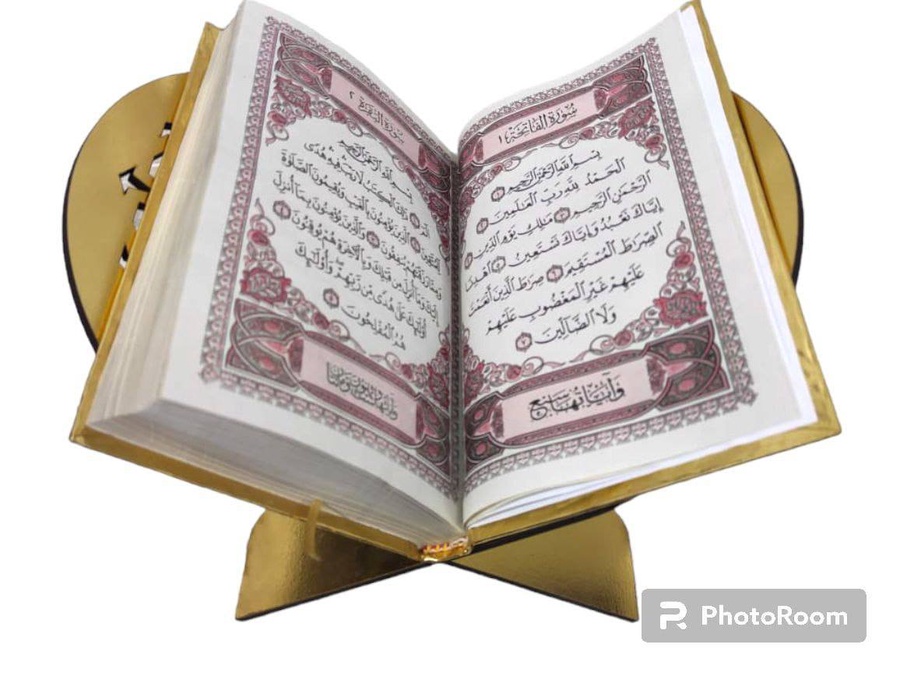 سُورَةُ الفَاتِحَةِ ١
بِسْمِ اللَّهِ الرَّحْمَٰنِ الرَّحِيمِ ١
الْحَمْدُ لِلَّهِ رَبِّ الْعَالَمِينَ ٢
الرَّحْمَٰنِ الرَّحِيمِ ٣ مَالِكِ يَوْمِ الدِّينِ ٤
إِيَّاكَ نَعْبُدُ وَإِيَّاكَ نَسْتَعِينُ ٥ اهْدِنَا
الصِّرَاطَ الْمُسْتَقِيمَ ٦ صِرَاطَ الَّذِينَ أَنْعَمْتَ
عَلَيْهِمْ غَيْرِ الْمَغْضُوبِ عَلَيْهِمْ
وَلَا الضَّالِّينَ ٧
وَآيَاتُهَا سَبْعٌ
سُورَةُ البَقَرَةِ ٢
بِسْمِ اللَّهِ الرَّحْمَٰنِ الرَّحِيمِ
الم ١ ذَٰلِكَ الْكِتَابُ لَا رَيْبَ فِيهِ هُدًى
لِّلْمُتَّقِينَ ٢ الَّذِينَ يُؤْمِنُونَ بِالْغَيْبِ وَيُقِيمُونَ الصَّلَاةَ
وَمِمَّا رَزَقْنَاهُمْ يُنفِقُونَ ٣ وَالَّذِينَ يُؤْمِنُونَ بِمَا أُنزِلَ
إِلَيْكَ وَمَا أُنزِلَ مِن قَبْلِكَ وَبِالْآخِرَةِ هُمْ يُوقِنُونَ ٤
أُولَٰئِكَ عَلَىٰ هُدًى مِّن رَّبِّهِمْ وَأُولَٰئِكَ
هُمُ الْمُفْلِحُونَ ٥
PhotoRoom